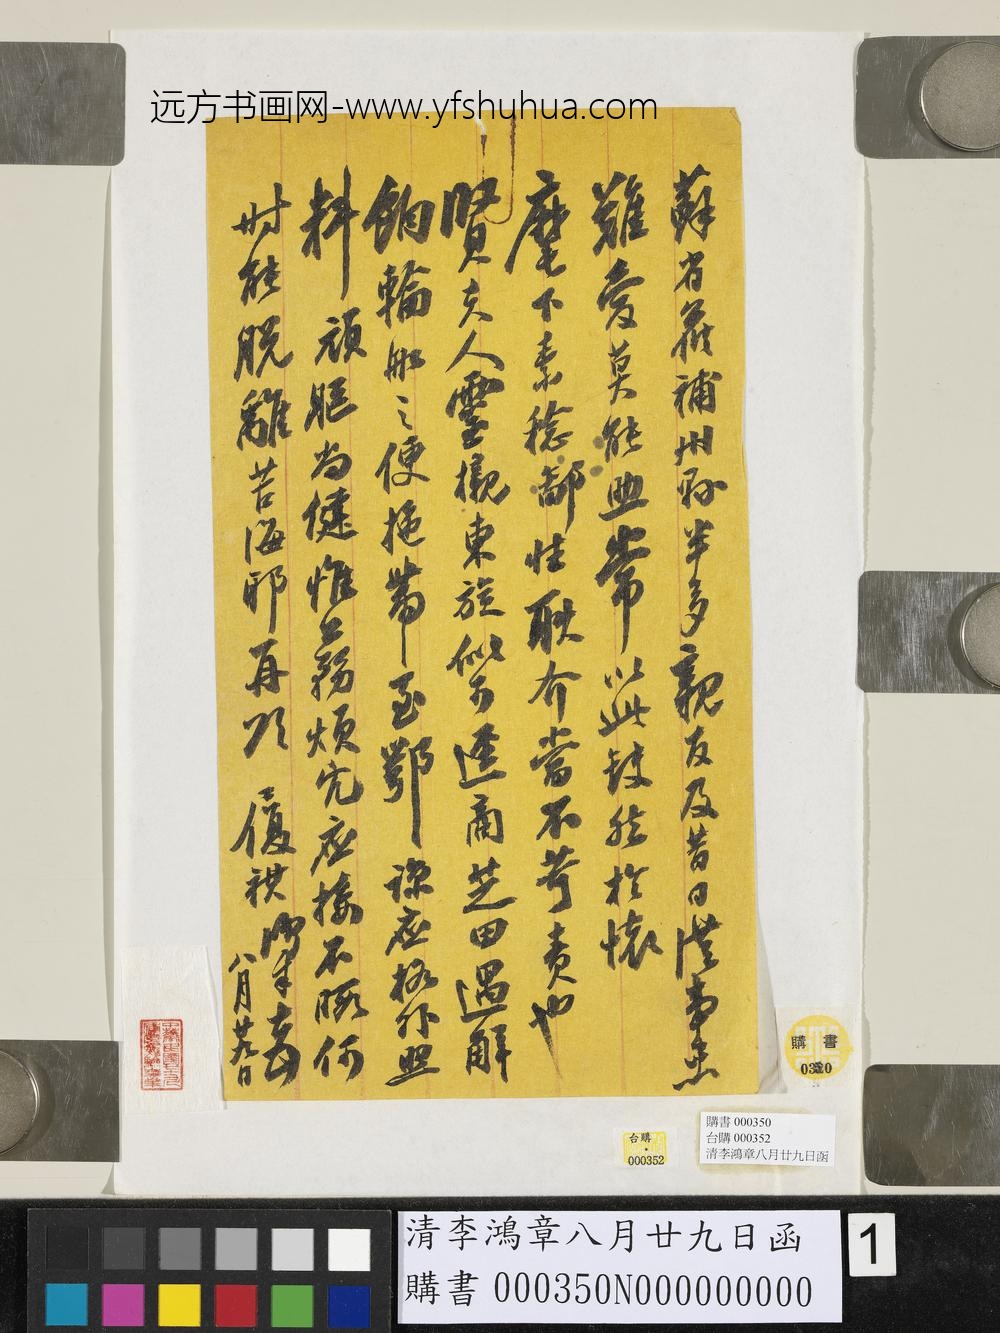 远方书画网-www.yfshuhua.com
蘇省在補州縣半多親友及昔日從事患
難愛莫能助常以此歉然於懷
麾下素稔鄙性耿介當不苛責也
賢夫人靈櫬東旋似可逕商芝田遇解
餉輪船之便拖帶至鄂 謹應格外照
料 頑軀尚健惟公務煩冗應接不暇何
时能脱離苦海耶再頌 優祺 鴻章
八月廿九日
購書
0320
台購
000352
購書 000350
台購 000352
清李鴻章八月廿九日函
清李鴻章八月廿九日函
購書 000350N000000000
1